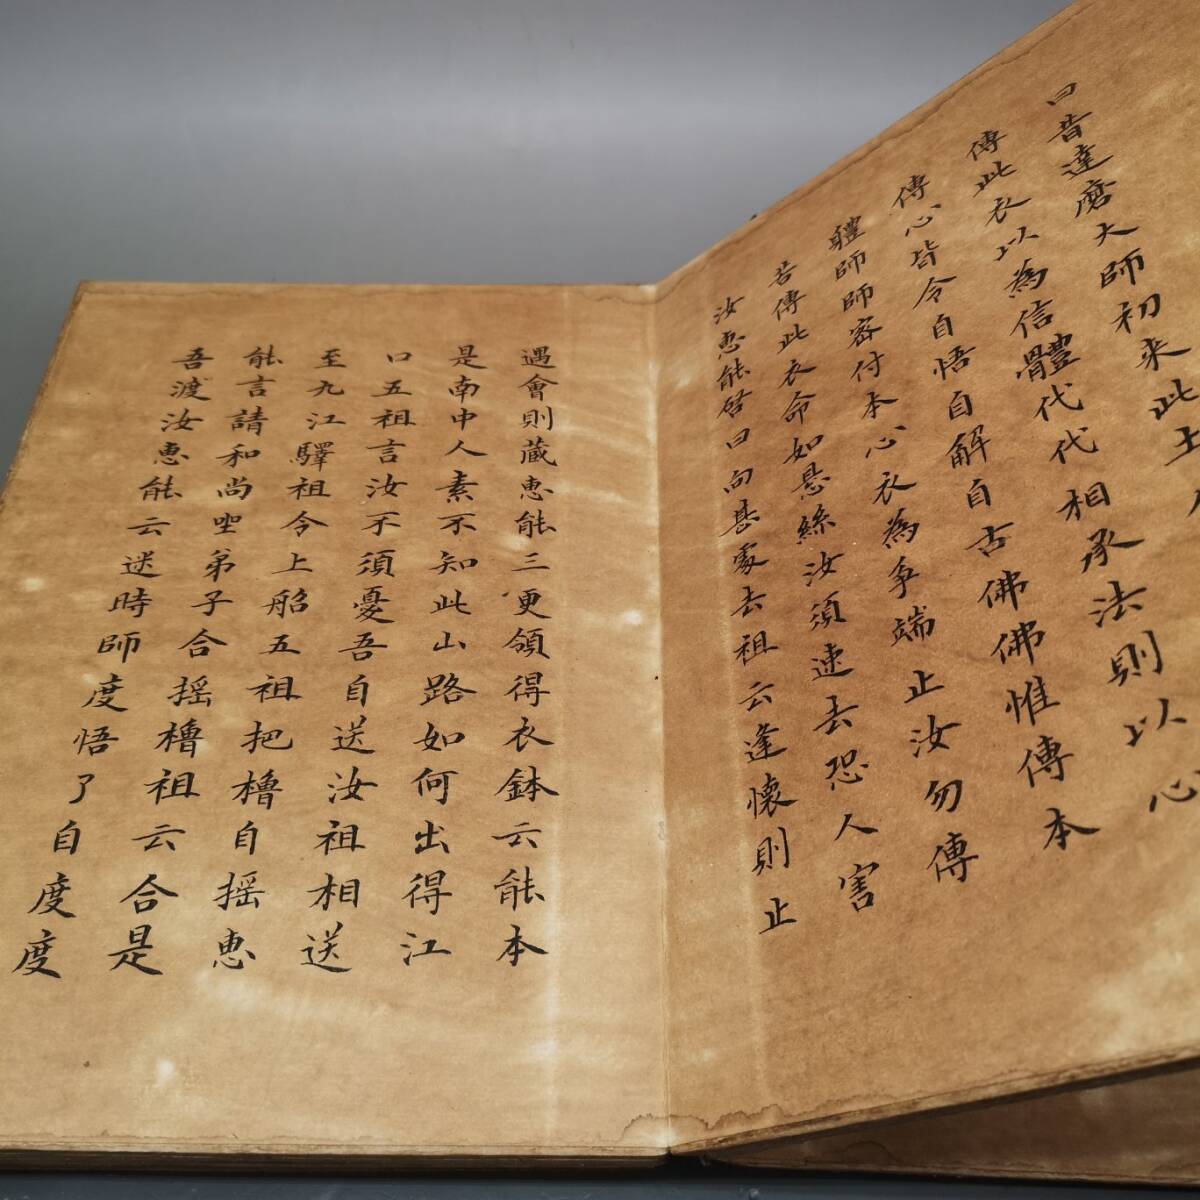 曰昔達磨大師初來此土
傳此衣以為信體代代相承法則以心
傳心皆令自悟自解自古佛佛惟傳本
體師師密付本心衣為爭端止汝勿傳
若傳此衣命如悬絲汝須速去恐人害
汝惠能啓曰向甚處去祖云逢懷則止
遇會則藏惠能三更領得衣鉢云能本
是南中人素不知此山路如何出得江
口五祖言汝不須憂吾自送汝祖相送
至九江驛祖令上船五祖把櫓自摇惠
能言請和尚坐弟子合摇櫓祖云合是
吾渡汝惠能云迷時師度悟了自度度